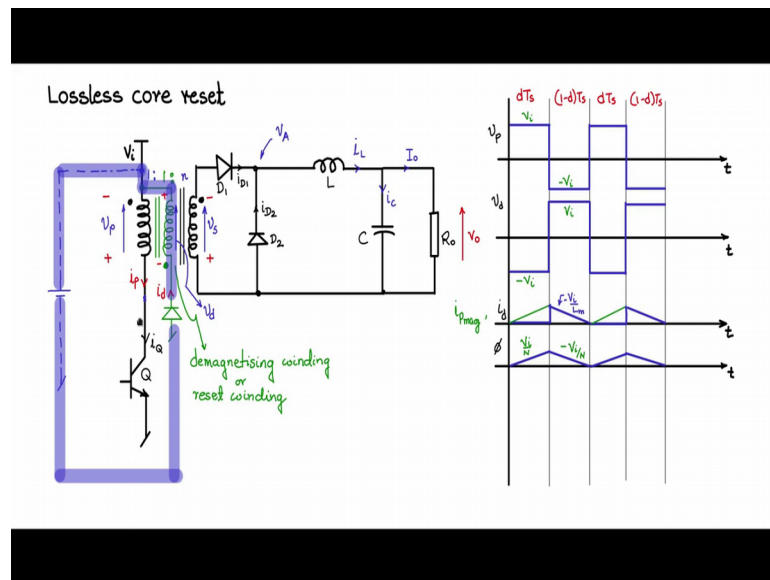 Lossless core reset
Vi
1 : 1 : n
vp
+
-
iP
iQ
Q
id
vd
demagnetising winding
or
reset winding
vs
D1
iD1
vA
iD2
D2
L
iL
Io
ic
C
Ro
vo
dTs (1-d)Ts dTs (1-d)Ts
vp
Vi
-Vi
t
vd
Vi
-Vi
t
ipmag, id
-Vi/Lm
t
ϕ
Vi/N
-Vi/N
t